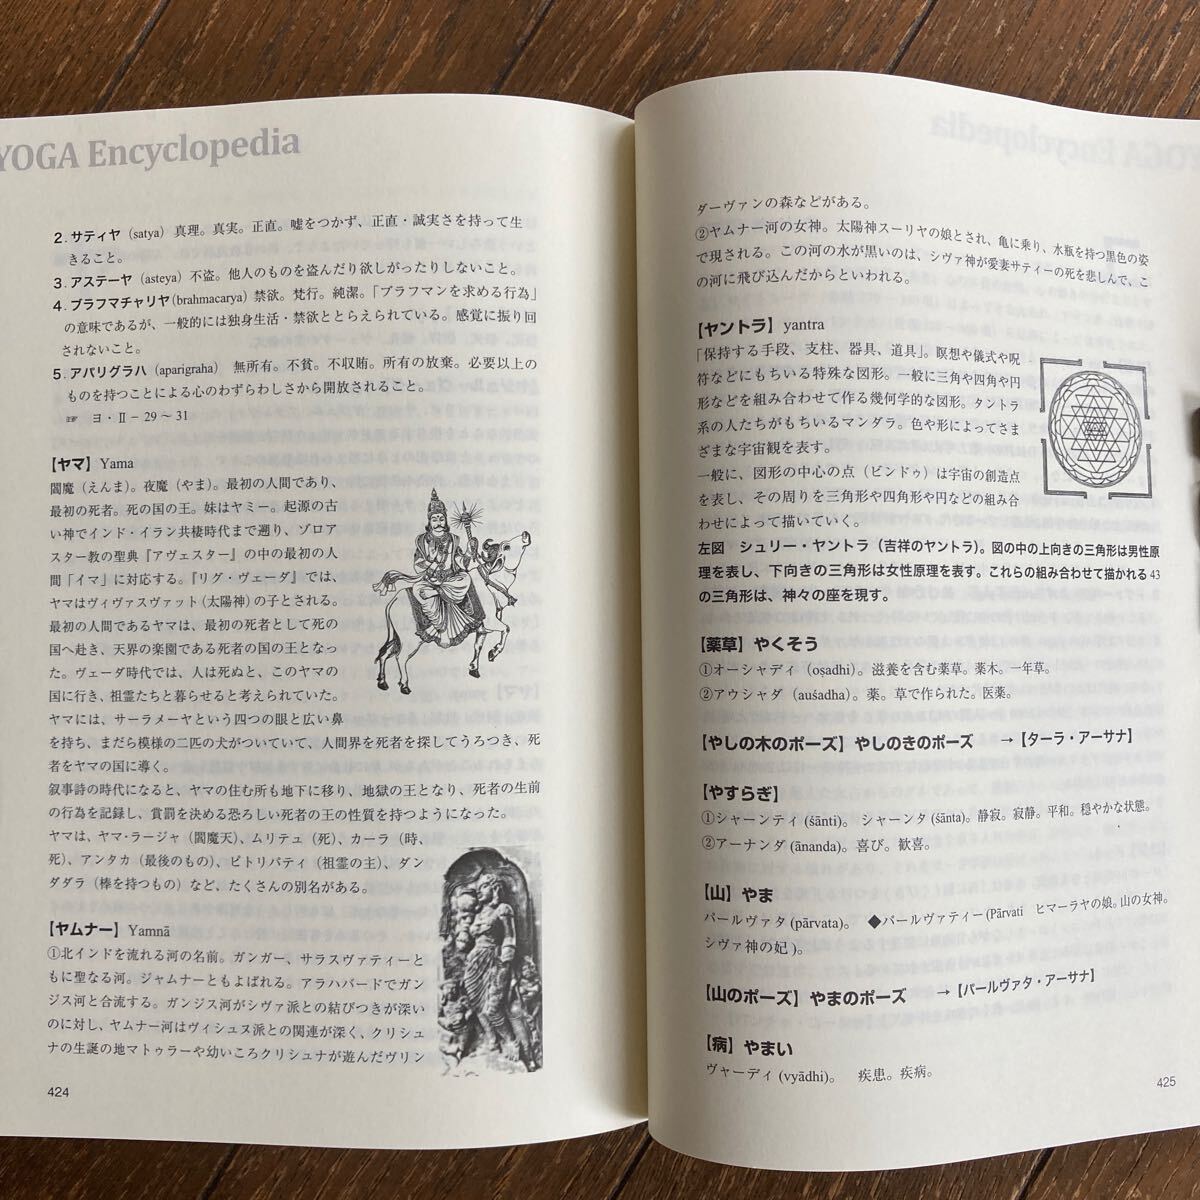 YOGA Encyclopedia
2. サティヤ (satya) 真理。真実。正直。嘘をつかず、正直・誠実さを持って生
きること。
3. アステーヤ (asteya) 不盗。他人のものを盗んだり欲しがったりしないこと。
4. ブラフマチャリヤ(brahmacarya) 禁欲。梵行。純潔。「ブラフマンを求める行為」
の意味であるが、一般的には独身生活・禁欲ととらえられている。感覚に振り回
されないこと。
5. アパリグラハ (aparigraha) 無所有。不貧。不収賄。所有の放棄。必要以上の
ものを持つことによる心のわずらわしさから開放されること。
☞ ヨ・Ⅱ－29～31
【ヤマ】Yama
閻魔（えんま）。夜魔（やま）。最初の人間であり、
最初の死者。死の国の王。妹はヤミー。起源の古
い神でインド・イラン共棲時代まで遡り、ゾロア
スター教の聖典『アヴェスター』の中の最初の人
間「イマ」に対応する。『リグ・ヴェーダ』では、
ヤマはヴィヴァスヴァット(太陽神)の子とされる。
最初の人間であるヤマは、最初の死者として死の
国へ赴き、天界の楽園である死者の国の王となっ
た。ヴェーダ時代では、人は死ぬと、このヤマの
国に行き、祖霊たちと暮らせると考えられていた。
ヤマには、サーラメーヤという四つの眼と広い鼻
を持ち、まだら模様の二匹の犬がついていて、人間界を死者を探してうろつき、死
者をヤマの国に導く。
叙事詩の時代になると、ヤマの住む所も地下に移り、地獄の王となり、死者の生前
の行為を記録し、賞罰を決める恐ろしい死者の王の性質を持つようになった。
ヤマは、ヤマ・ラージャ（閻魔天）、ムリテュ（死）、カーラ（時、
死）、アンタカ（最後のもの）、ピトリパティ（祖霊の主）、ダン
ダダラ（棒を持つもの）など、たくさんの別名がある。
【ヤムナー】Yamnā
①北インドを流れる河の名前。ガンガー、サラスヴァティーと
もに聖なる河。ジャムナーともよばれる。アラハバードでガン
ジス河と合流する。ガンジス河がシヴァ派との結びつきが深い
のに対し、ヤムナー河はヴィシュヌ派との関連が深く、クリシュ
ナの生誕の地マトゥラーや幼いころクリシュナが遊んだヴリン
424
ダーヴァンの森などがある。
②ヤムナー河の女神。太陽神スーリヤの娘とされ、亀に乗り、水瓶を持つ黒色の姿
で現される。この河の水が黒いのは、シヴァ神が愛妻サティーの死を悲しんで、こ
の河に飛び込んだからといわれる。
【ヤントラ】yantra
「保持する手段、支柱、器具、道具」。瞑想や儀式や呪
符などにもちいる特殊な図形。一般に三角や四角や円
形などを組み合わせて作る幾何学的な図形。タントラ
系の人たちがもちいるマンダラ。色や形によってさま
ざまな宇宙観を表す。
一般に、図形の中心の点（ビンドゥ）は宇宙の創造点
を表し、その周りを三角形や四角形や円などの組み合
わせによって描いていく。
左図　シュリー・ヤントラ（吉祥のヤントラ）。図の中の上向きの三角形は男性原
理を表し、下向きの三角形は女性原理を表す。これらの組み合わせて描かれる43
の三角形は、神々の座を現す。
【薬草】やくそう
①オーシャディ（oṣadhi）。滋養を含む薬草。薬木。一年草。
②アウシャダ（auśadha）。薬。草で作られた。医薬。
【やしの木のポーズ】やしのきのポーズ　→【ターラ・アーサナ】
【やすらぎ】
①シャーンティ(śānti)。シャーンタ(śānta)。静寂。寂静。平和。穏やかな状態。
②アーナンダ(ānanda)。喜び。歓喜。
【山】やま
パールヴァタ(pārvata)。　◆パールヴァティー(Pārvati　ヒマーラヤの娘。山の女神。
シヴァ神の妃)。
【山のポーズ】やまのポーズ　→【パールヴァタ・アーサナ】
【病】やまい
ヴャーディ(vyādhi)。　疾患。疾病。
425